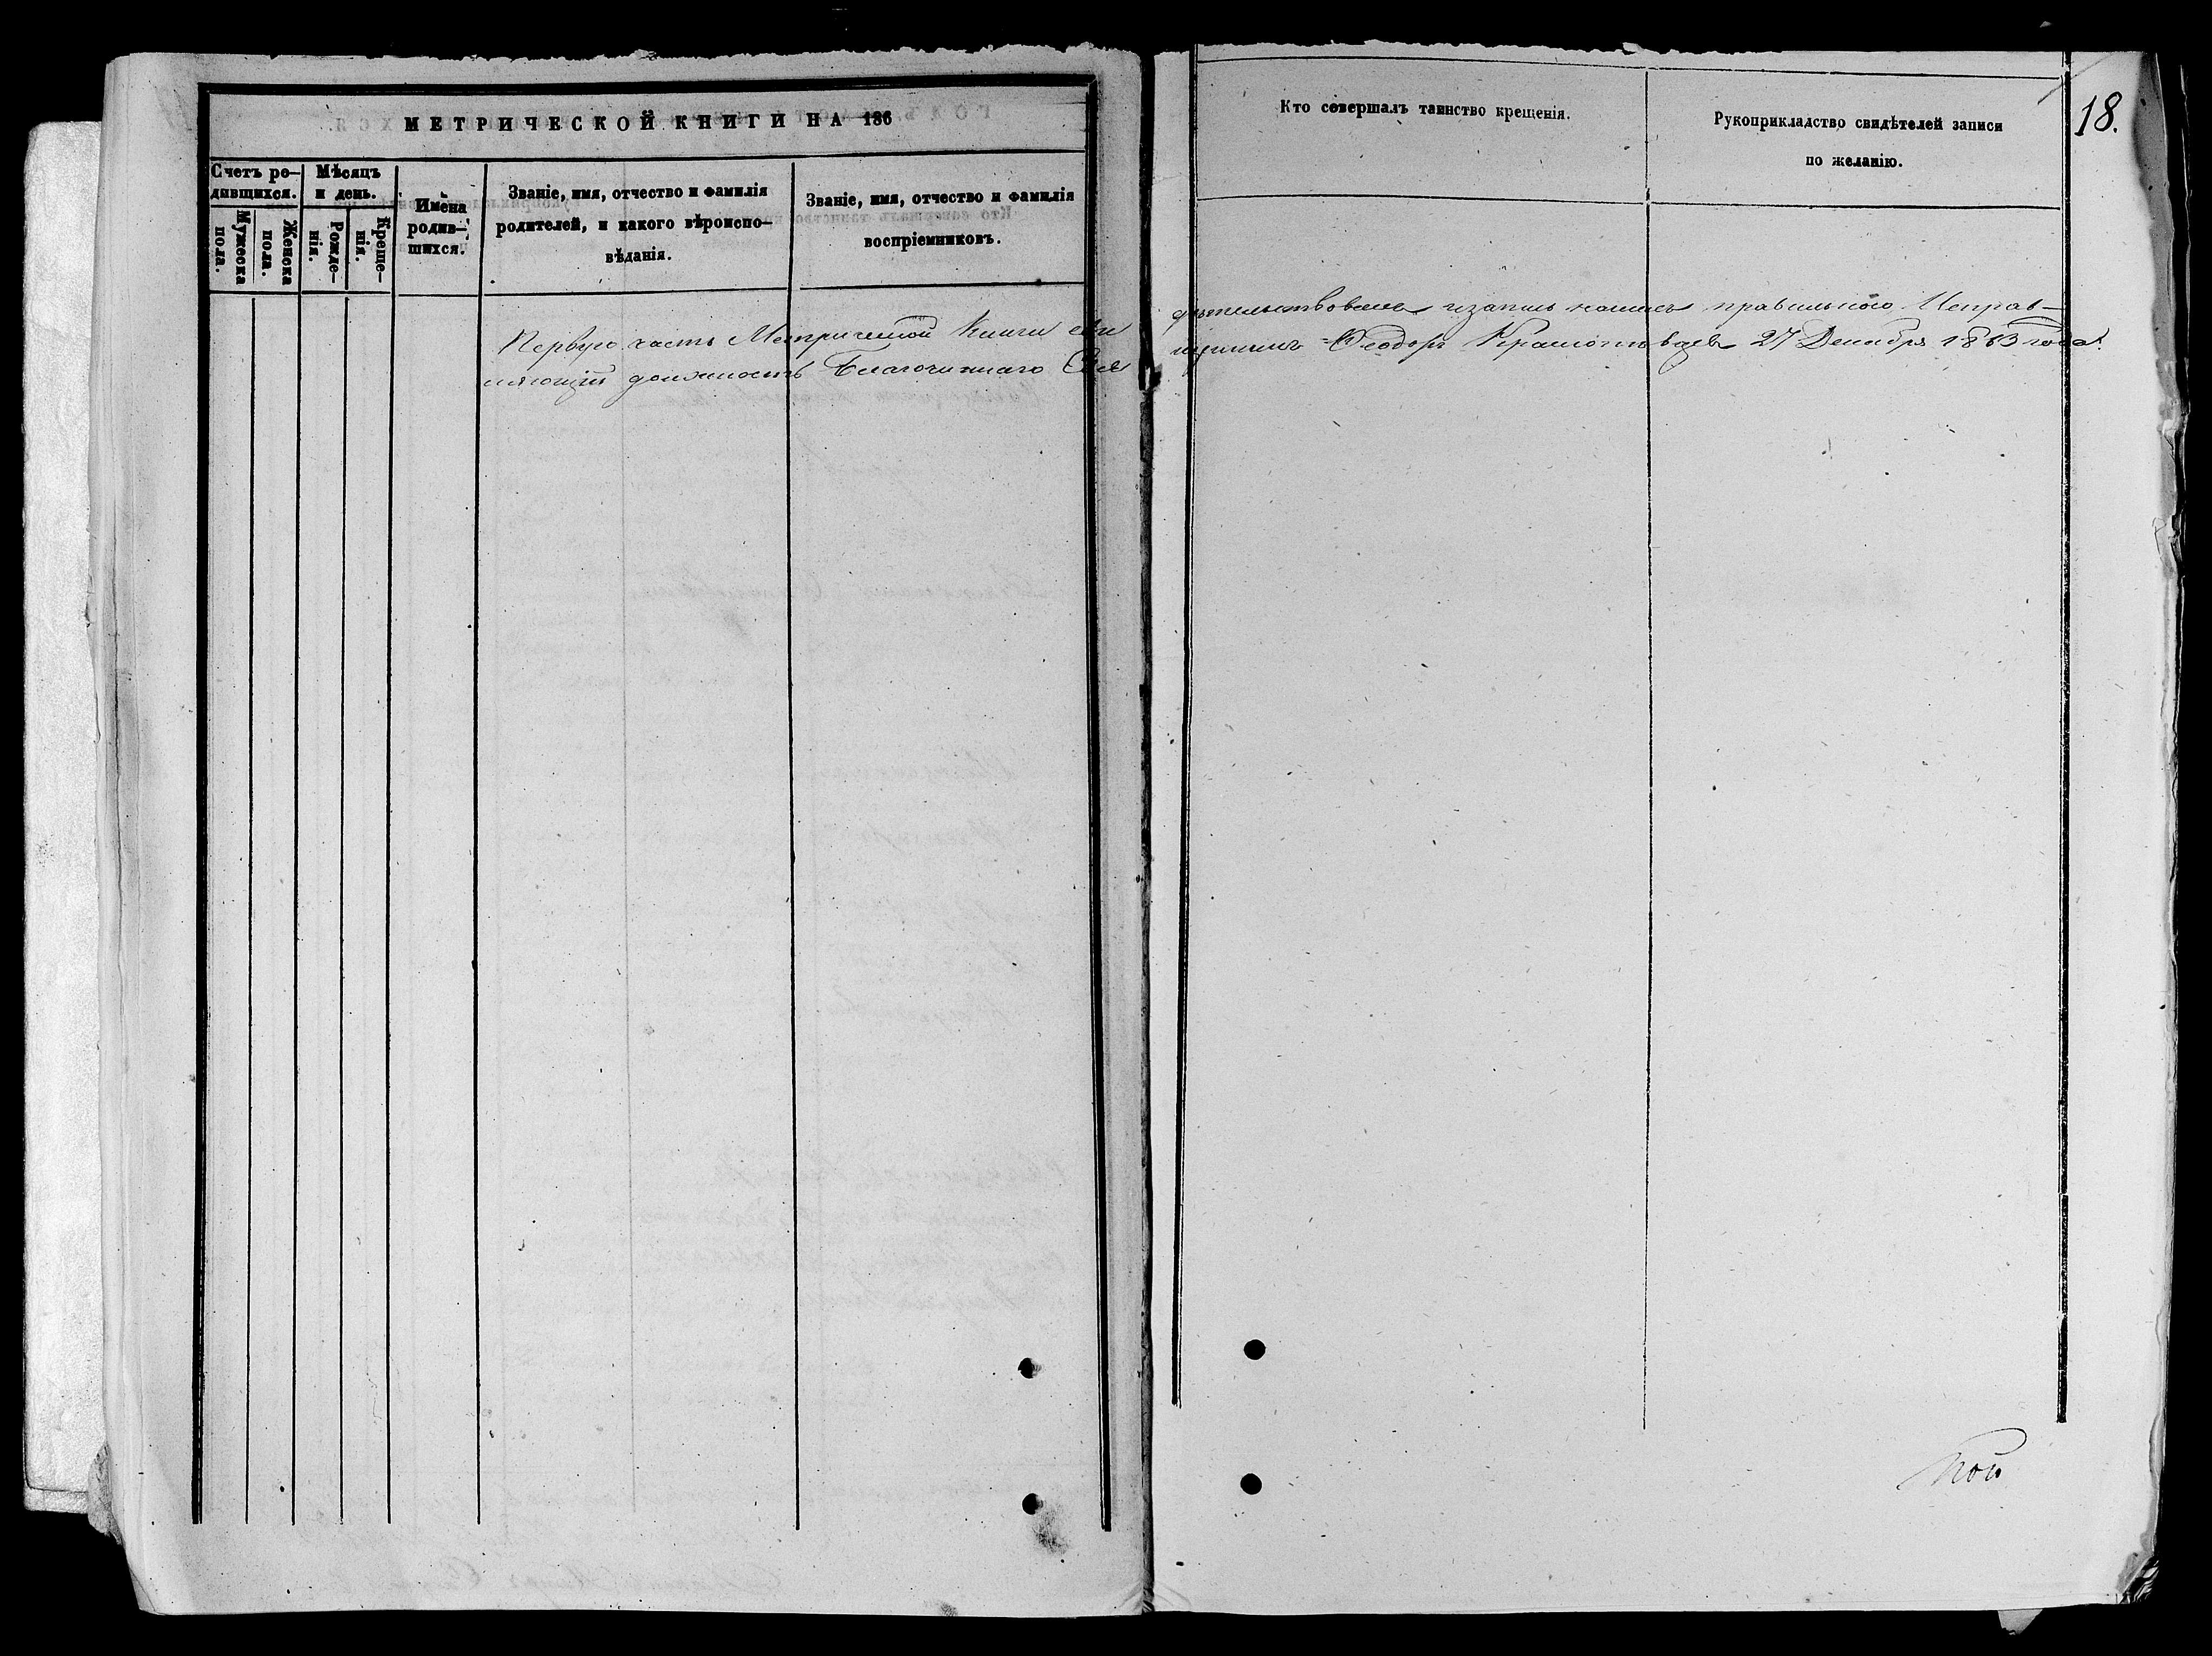 МЕТРИЧЕСКОЙ КНИГИ НА 186
Счетъ ро-
дившихся.
Мужеска
пола.
Женска
пола.
Мѣсяцъ
и день.
Рожде-
нія.
Креще-
нія.
Имена
родив-
шихся.
Званіе, имя, отчество и фамилія
родителей, и какого вѣроиспо-
вѣданія.
Званіе, имя, отчество и фамилія
воспріемниковъ.
Кто совершалъ таинство крещенія.
Рукоприкладство свидѣтелей записи
по желанію.
18.
Первую часть Метрической Книги сви
дѣтельствовалъ и запись нашелъ правильною Исправ-
ляющій должность Благочиннаго Свя
щенникъ Ѳеодоръ 27 Декабря 1863 года.